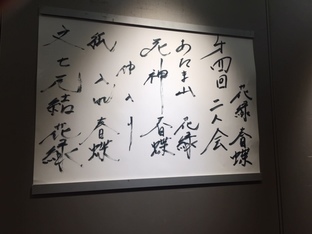 花緑 春蝶
第四回 二人会
あたま山 花緑
死神 春蝶
仲入り
紙入れ 春蝶
文七元結 花緑